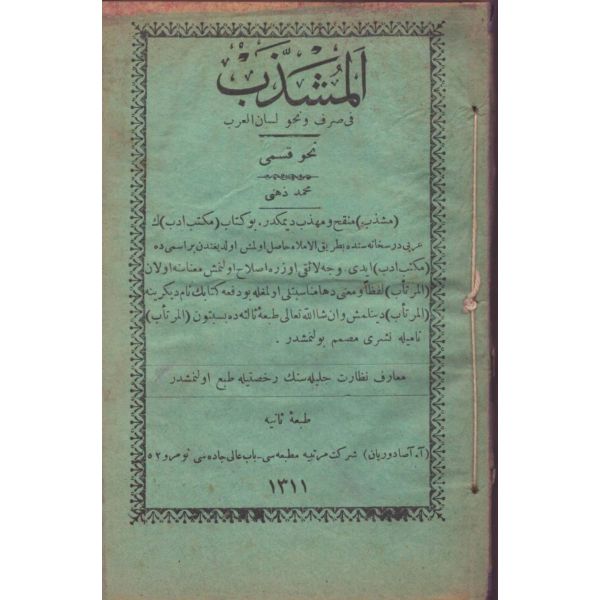 اَلْمُشَذَّب
فى صرف و نحو لسان العرب
نحو قسمى
محمد ذهنى
(مشذب) منقح و مهذب ديمكدر. بو كتاب (مكتب ادب)ك
عربى درسخانه سنده بطريق الاملاء حاصل اولمش اولديغندن بر اسمى ده
(مكتب ادب) ايدى. وجه لائقى اوزره اصلاح اولنمش معناسنه اولان
(المرتأب) لفظاً و معنى دها مناسبتلى اولمغله بو دفعه كتابك نام ديكرينه
(المرتأب) دينلمش و ان شا الله تعالى طبعۀ ثالثه ده بسبتون (المرتأب)
ناميله نشرى مصمم بولنمشدر .
معارف نظارت جليله سنك رخصتيله طبع اولنمشدر
طبعۀ ثانيه
(آ. آصادوريان) شركت مرتبيه مطبعه سى - باب عالى جاده سى نومرو ٥٢
١٣١١